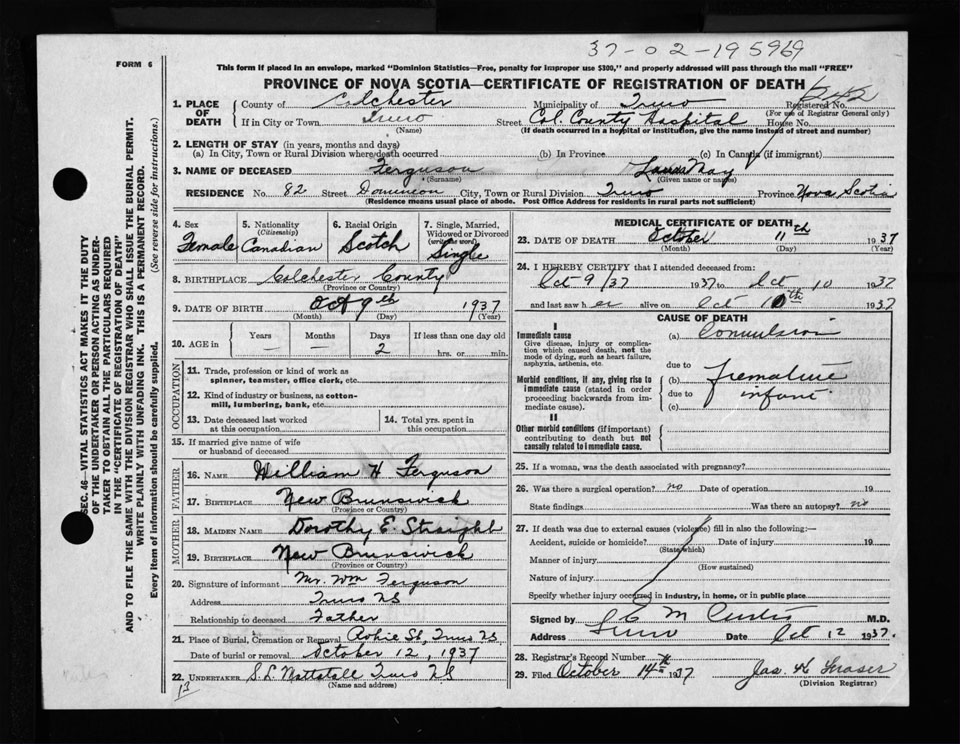 37-02-195969
FORM 6
This form if placed in an envelope, marked "Dominion Statistics—Free, penalty for improper use $300," and properly addressed will pass through the mail "FREE"
PROVINCE OF NOVA SCOTIA—CERTIFICATE OF REGISTRATION OF DEATH
242
1. PLACE OF DEATH County of Colchester Municipality of Truro Registered No.
(For use of Registrar General only)
If in City or Town Truro Street Col. County Hospital House No.
(Name) (If death occurred in a hospital or institution, give the name instead of street and number)
2. LENGTH OF STAY (in years, months and days)
(a) In City, Town or Rural Division where death occurred (b) In Province (c) In Canada (if immigrant)
3. NAME OF DECEASED Ferguson Laura May
(Surname) (Given name or names)
RESIDENCE No. 82 Street Dominion City, Town or Rural Division Truro Province Nova Scotia
(Residence means usual place of abode. Post Office Address for residents in rural parts not sufficient)
4. Sex Female
5. Nationality (Citizenship) Canadian
6. Racial Origin Scotch
7. Single, Married, Widowed or Divorced (write the word) Single
8. BIRTHPLACE Colchester County
(Province or Country)
9. DATE OF BIRTH Oct 9th 1937
(Month) (Day) (Year)
10. AGE in Years — Months — Days 2 If less than one day old hrs. or min.
OCCUPATION
11. Trade, profession or kind of work as spinner, teamster, office clerk, etc.
12. Kind of industry or business, as cotton-mill, lumbering, bank, etc.
13. Date deceased last worked at this occupation
14. Total yrs. spent in this occupation
15. If married give name of wife or husband of deceased
FATHER
16. NAME William H Ferguson
17. BIRTHPLACE New Brunswick
(Province or Country)
MOTHER
18. MAIDEN NAME Dorothy E. Straight
19. BIRTHPLACE New Brunswick
(Province or Country)
20. Signature of informant Mr. Wm Ferguson
Address Truro NS
Relationship to deceased Father
21. Place of Burial, Cremation or Removal Robie St, Truro NS
Date of burial or removal October 12, 1937
22. UNDERTAKER S.L. Nattatall Truro NS
(Name and address)
13
MEDICAL CERTIFICATE OF DEATH
23. DATE OF DEATH October 11th 1937
(Month) (Day)
24. I HEREBY CERTIFY that I attended deceased from:
Oct 9/37 1937 to Oct 10 1937
and last saw her alive on Oct 10th 1937
CAUSE OF DEATH
I
Immediate cause
Give disease, injury or complication which caused death, not the mode of dying, such as heart failure, asphyxia, asthenia, etc.
(a) Convulsion
due to
Morbid conditions, if any, giving rise to immediate cause (stated in order proceeding backwards from immediate cause).
(b) Premature
due to infant
(c)
II
Other morbid conditions (if important) contributing to death but not causally related to immediate cause.
25. If a woman, was the death associated with pregnancy?
26. Was there a surgical operation? no Date of operation 19
State findings Was there an autopsy? no
27. If death was due to external causes (violence) fill in also the following:—
Accident, suicide or homicide? Date of injury 19
(State which)
Manner of injury
(How sustained)
Nature of injury
Specify whether injury occurred in industry, in home, or in public place
Signed by M.D.
Address Truro Date Oct 12 1937.
28. Registrar's Record Number
29. Filed October 14th 1937 Jas. H. Fraser
(Division Registrar)
SEC. 46—VITAL STATISTICS ACT MAKES IT THE DUTY
OF THE UNDERTAKER OR PERSON ACTING AS UNDER-
TAKER TO OBTAIN ALL THE PARTICULARS REQUIRED
IN THE "CERTIFICATE OF REGISTRATION OF DEATH"
AND TO FILE THE SAME WITH THE DIVISION REGISTRAR WHO SHALL ISSUE THE BURIAL PERMIT.
WRITE PLAINLY WITH UNFADING INK. THIS IS A PERMANENT RECORD.
Every item of information should be carefully supplied. (See reverse side for instructions.)